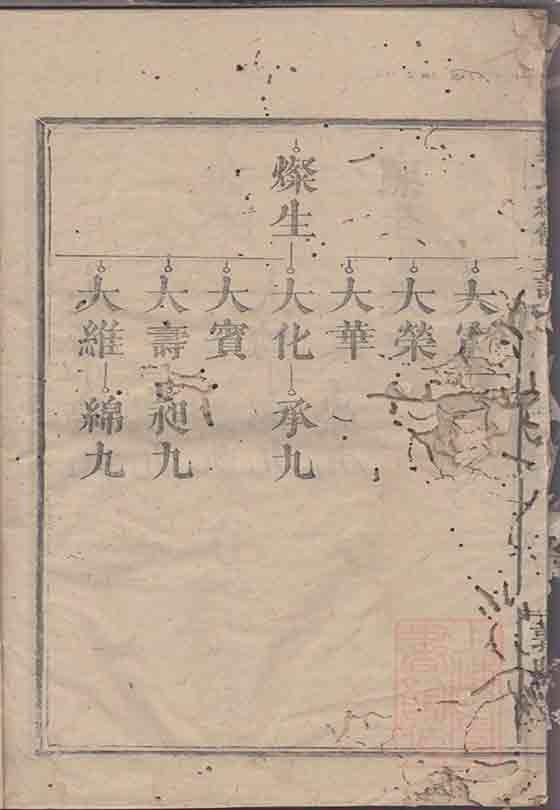 燦生
大
大榮
大華
大化
承九
大賓
大壽
昶九
大維
綿九